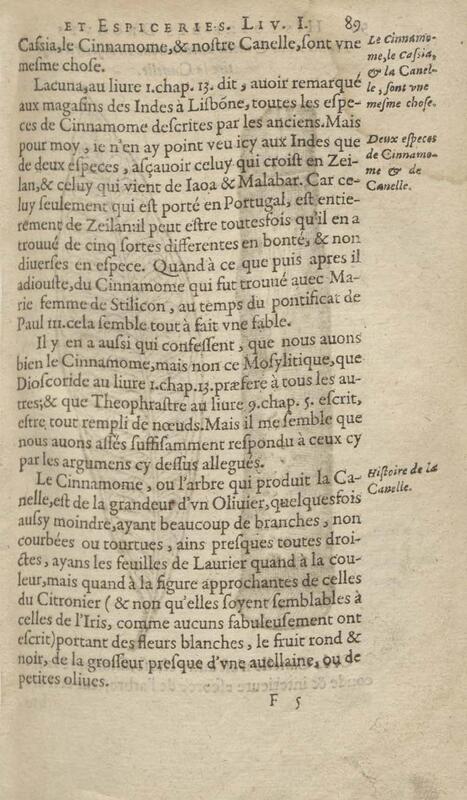 ET ESPICERIES. LIV. I. 89
Caſsia, le Cinnamome, & noſtre Canelle, ſont vne
meſme choſe.
Le Cinnamo-
me, le Caſsia,
& la Canel-
le, ſont vne
meſme choſe.
Lacuna, au liure 1. chap. 13. dit, auoir remarqué
aux magaſins des Indes à Liſbōne, toutes les eſpe-
ces de Cinnamome deſcrites par les anciens. Mais
pour moy, ie n'en ay point veu icy aux Indes que
de deux eſpeces, aſçauoir celuy qui croiſt en Zei-
lan, & celuy qui vient de Iaoa & Malabar. Car ce-
luy ſeulement qui eſt porté en Portugal, eſt entie-
rement de Zeilan: il peut eſtre toutesfois qu'il en a
trouué de cinq ſortes differentes en bonté, & non
diuerſes en eſpece. Quand à ce que puis apres il
adiouſte, du Cinnamome qui fut trouué auec Ma-
rie femme de Stilicon, au temps du pontificat de
Paul III. cela ſemble tout à fait vne fable.
Deux eſpeces
de Cinnamo-
me & de
Canelle.
Il y en a auſsi qui confeſſent, que nous auons
bien le Cinnamome, mais non ce Moſylitique, que
Dioſcoride au liure 1. chap. 13. præfere à tous les au-
tres; & que Theophraſtre au liure 9. chap. 5. eſcrit,
eſtre tout rempli de nœuds. Mais il me ſemble que
nous auons aſſés ſuffiſamment reſpondu à ceux cy
par les argumens cy deſſus allegués.
Le Cinnamome, ou l'arbre qui produit la Ca-
nelle, eſt de la grandeur d'vn Oliuier, quelquesfois
auſſy moindre, ayant beaucoup de branches, non
courbées ou tourtues, ains preſques toutes droi-
ctes, ayans les feuilles de Laurier quand à la cou-
leur, mais quand à la figure approchantes de celles
du Citronier (& non qu'elles ſoyent ſemblables à
celles de l'Iris, comme aucuns fabuleuſement ont
eſcrit) portant des fleurs blanches, le fruit rond &
noir, de la groſſeur preſque d'vne auellaine, ou de
petites oliues.
Hiſtoire de la
Canelle.
F 5